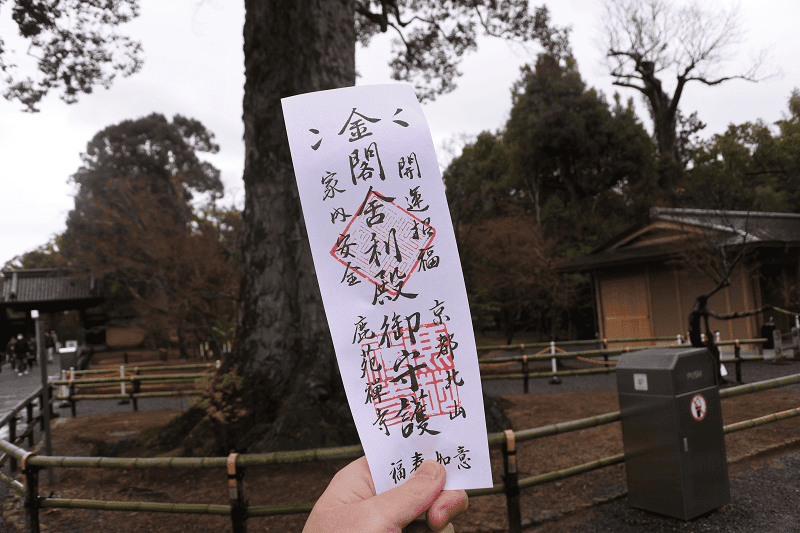 開運招福
京都北山
金閣舎利殿御守護
家内安全
鹿苑禅寺
福寿如意
PUSH